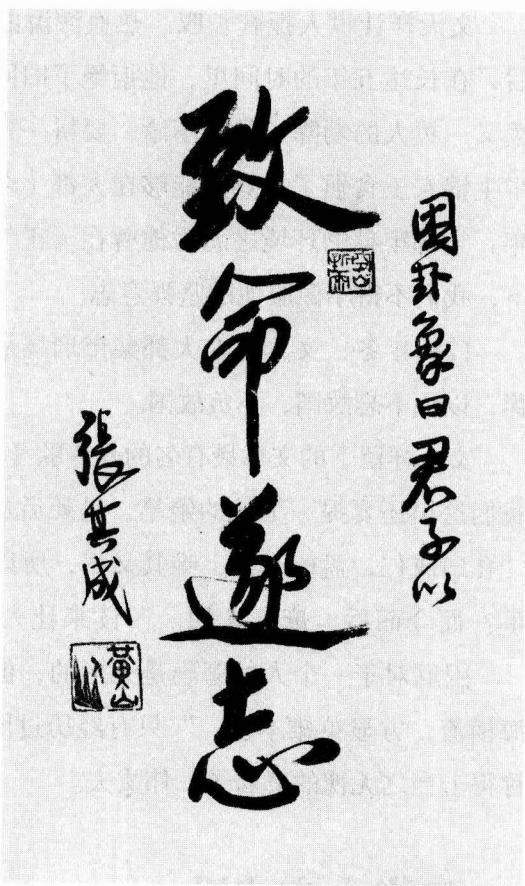 困卦象曰君子以
致命遂志
張其成
黃山